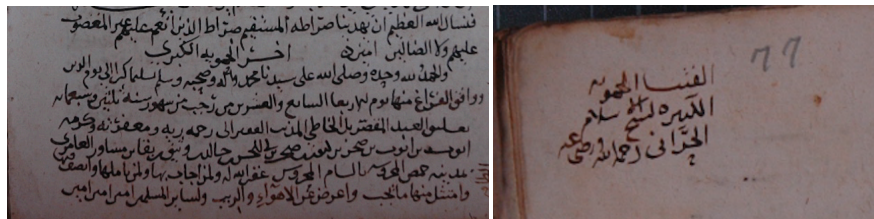 فنسال الله العظيم ان يهدينا صراطه المستقيم صراط الذين انعم عليهم غير المغضوب
عليهم ولا الضالين امين اخر الحموية الكبرى
والحمد لله وحده وصلى الله على سيدنا محمد واله وصحبه وسلم تسليما كثيرا الى يوم الدين
ووافق الفراغ منها يوم الاربعا السابع والعشرين من رجب من شهور سنة ثلثين وسبعمائة
بعليق العبد المقصر الخاطي المذنب الفقير الى رحمة ربه ومعفرته وكرمه
ايوب بن ايوب بن صخر بن ايوب بن صخر بن
بمدينة حمص المحروسة بالسام المحروس غفر الله له ولمن اجاب بها ولمن تاملها وانصف
وامتثل منها ما يجب واعرض عن الاهواء والريب ولساير المسلمين امين امين امين
77
الفتيا الحموية
الكبيرة لشيخ الاسلام
الحراني رحمه الله ورضي عنه